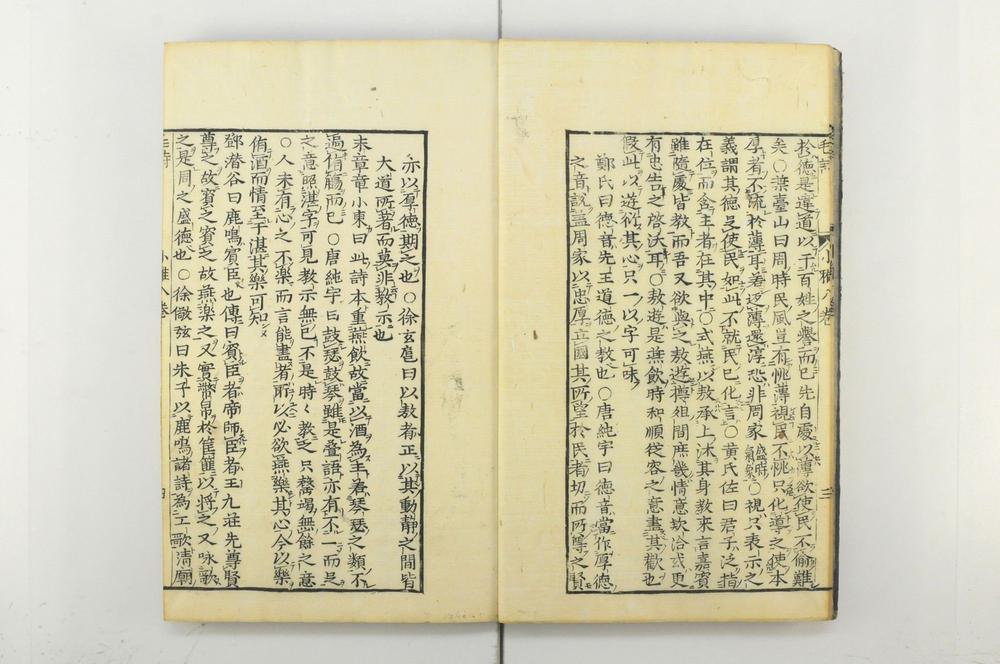 於德是違道以干百姓之譽而已先自處以薄欲使民不偷難
矣○葉臺山曰周時民風豈有恌薄視民不恌只化導之使本
厚者不流於薄耳若返薄還淳恐非周家盛時氣象○視只表示之
義謂其德足使民如此不就民已化言○黃氏佐曰君子泛指
在位而含王者在其中○式燕以敖承上沐其身教來言嘉賓
雖隨處皆教而吾又欲與之敖遊樽俎間庶幾情意欵洽或更
有忠告之啓沃耳○敖遊是燕飲時和順從容之意盡其歡也
假此以遊衍其心只一以字可味
鄭氏曰德音先王道德之教也○唐純宇曰德音當作厚德
之音說三周家以忠厚立國其所望於民者切而所傳之賢
毛詩 小雅八卷 三
亦以厚德期之也○徐玄扈曰以敖者正以其動靜之間皆
大道所著而莫非教示也
末章章小東曰此詩本重燕飲故當以酒為主若琴瑟之類不
過侑觴而已○唐純宇曰鼓瑟鼓琴雖是疊語亦有不一而足
之意照湛字可見教示無已不是時〻教之只罄竭無餘之意
○人未有心之不樂而言能盡者所以必欲燕樂其心今以樂
侑酒而情至于湛其樂可知
鄧潛谷曰鹿鳴賓臣也傳曰賓臣者帝師臣者王九莊先尊賢
尊之故賓之賓之故燕樂之又實幣帛於筐篚以將之又咏歌
之是周之盛德也○徐儆弦曰朱子以鹿鳴諸詩為工歌清廟
毛詩 小雅八卷 四